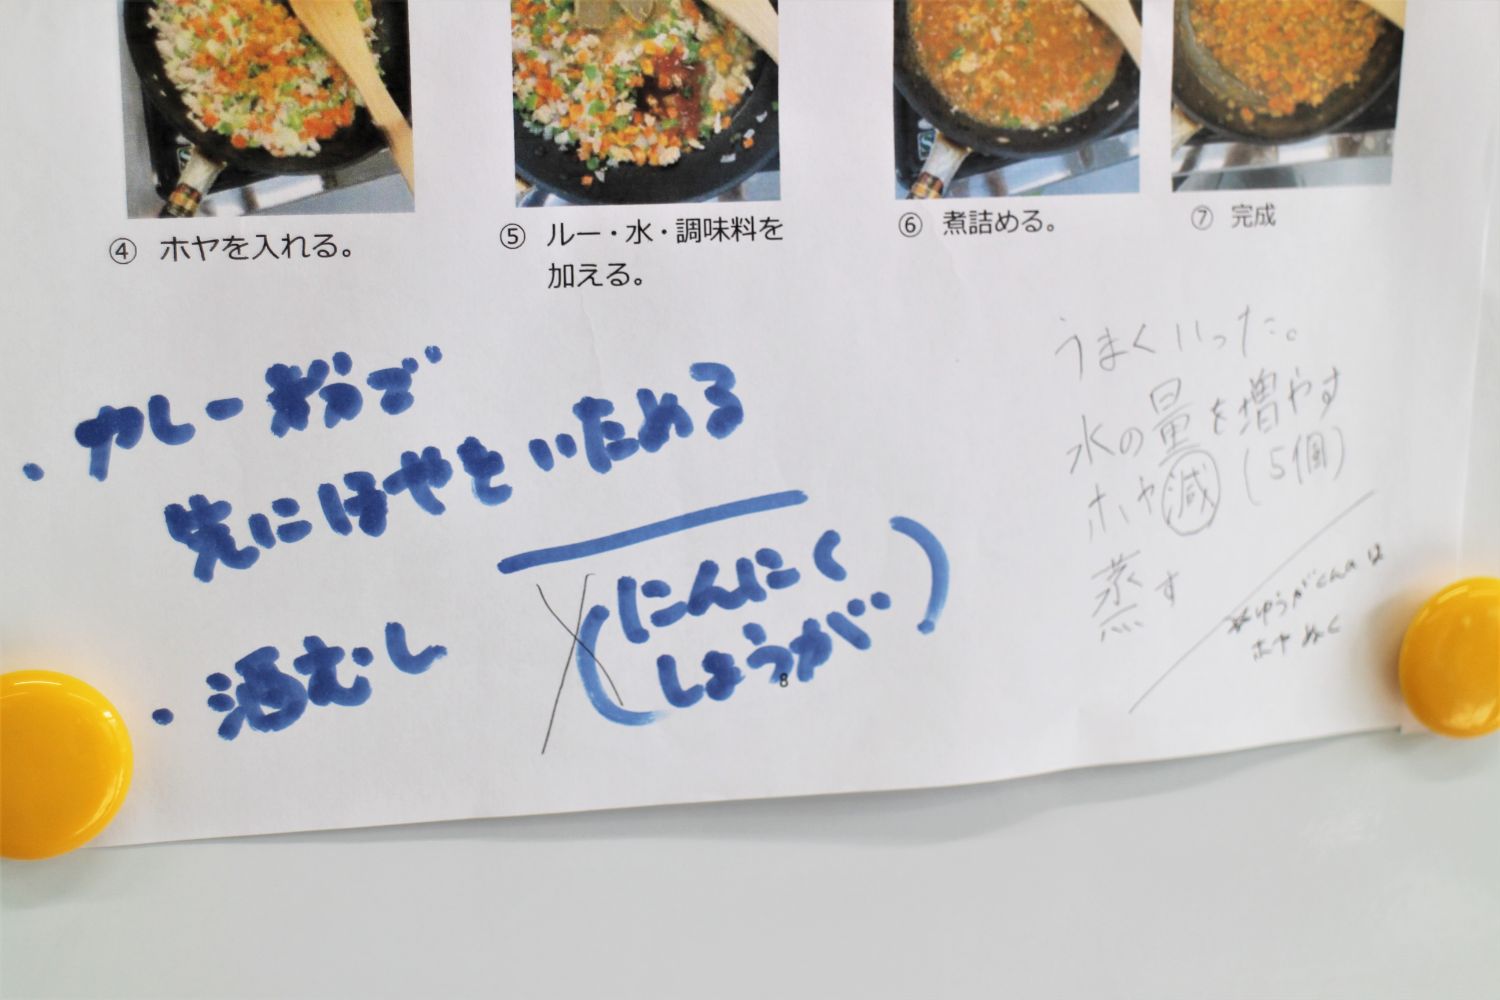 ④ ホヤを入れる。
⑤ ルー・水・調味料を
加える。
⑥ 煮詰める。
⑦ 完成
・カレー粉で
先にほやをいためる
(にんにく
しょうが)
・酒むし
8
うまくいった。
水の量を増やす
ホヤ減(5個)
蒸す
※ゆうがくんのは
ホヤぬく